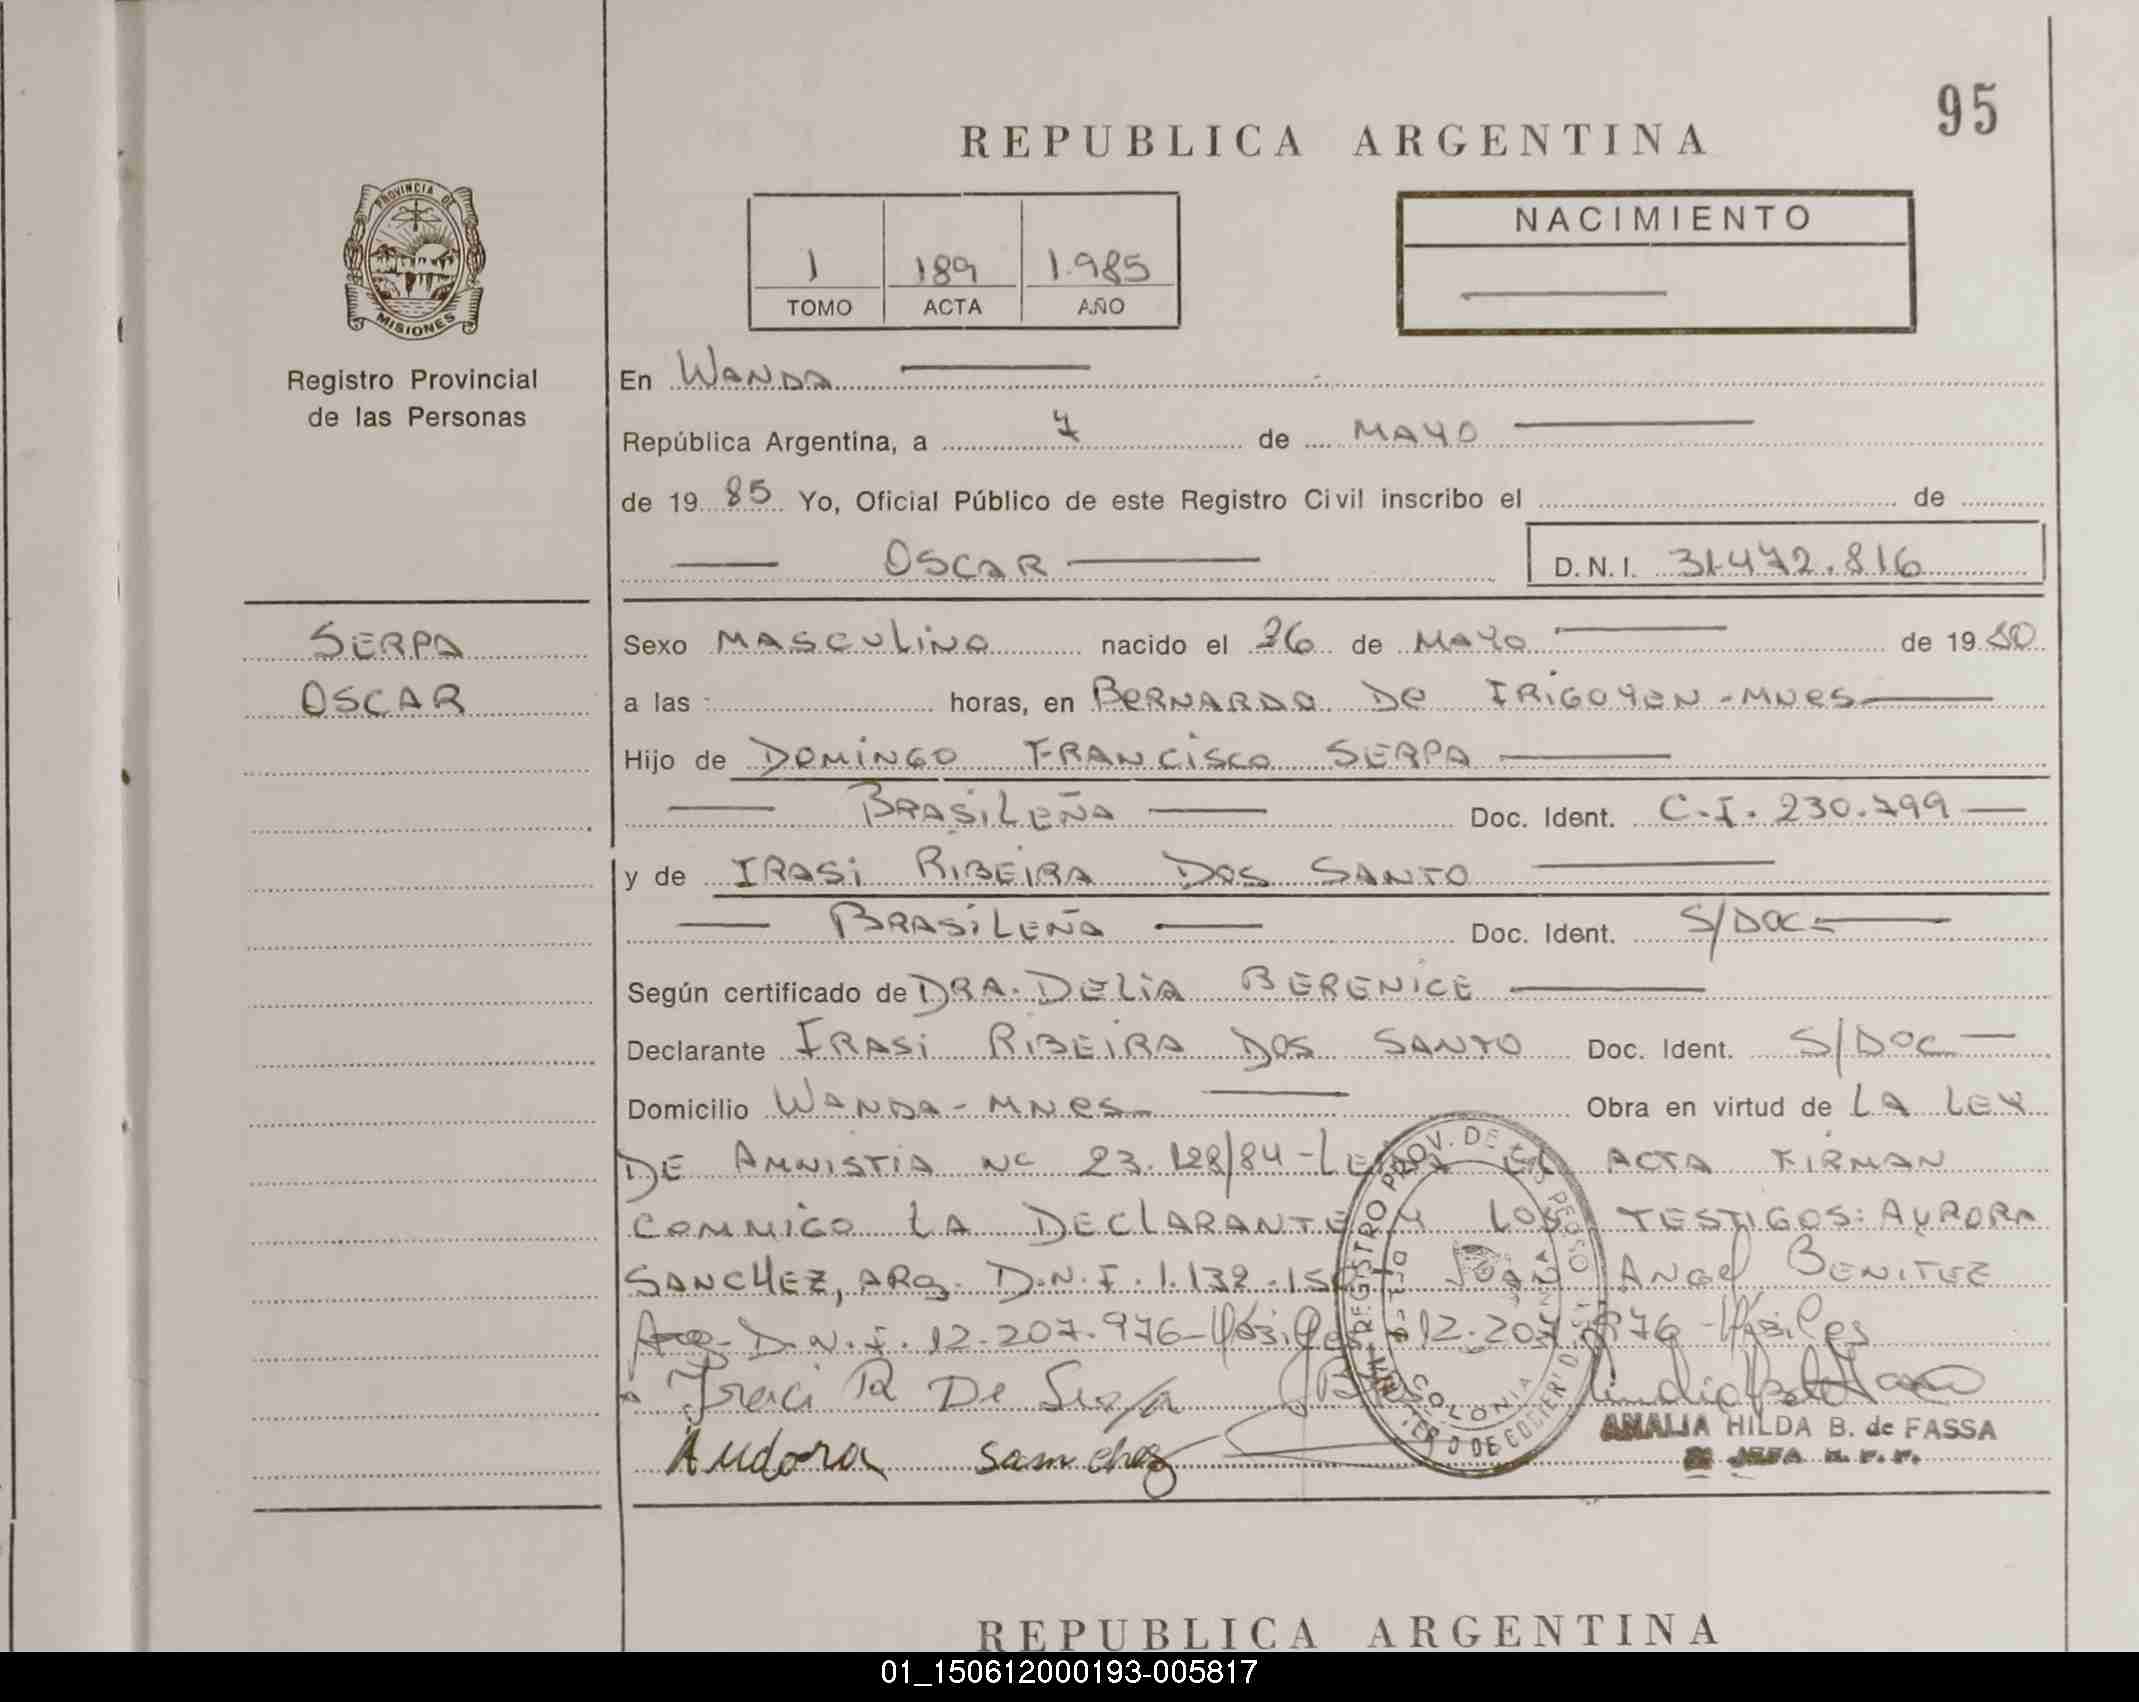 95
REPUBLICA ARGENTINA
PROVINCIA DE
MISIONES
Registro Provincial
de las Personas
1 189 1.985
TOMO ACTA AÑO
NACIMIENTO
En WANDA
República Argentina, a 7 de MAYO
de 1985 Yo, Oficial Público de este Registro Civil inscribo el de
OSCAR
D.N.I. 31.472.816
SERPA
OSCAR
Sexo MASCULINO nacido el 26 de MAYO de 19
a las horas, en BERNARDO DE IRIGOYEN-MNES
Hijo de DOMINGO FRANCISCO SERPA
BRASILEÑA Doc. Ident. C.I. 230.799
y de IRASI RIBEIRA DOS SANTO
BRASILEÑA Doc. Ident. S/DOC
Según certificado de DRA. DELIA BERENICE
Declarante IRASI RIBEIRA DOS SANTO Doc. Ident. S/DOC
Domicilio WANDA-MNES Obra en virtud de LA LEY
DE AMNISTIA Nº 23.128/84- EL ACTA FIRMAN
CONMIGO LA DECLARANTE Y LOS TESTIGOS: AURORA
SANCHEZ, ARG. D.N.I. 1.132. JUAN ANGEL BENITEZ
ARG. D.N.I. 12.207.976-
Iraci R De Serpa
Audora Sanchez
COLONIA WANDA
AMALIA HILDA B. de FASSA
JEFA R. P. P.
REPUBLICA ARGENTINA
01_150612000193-005817